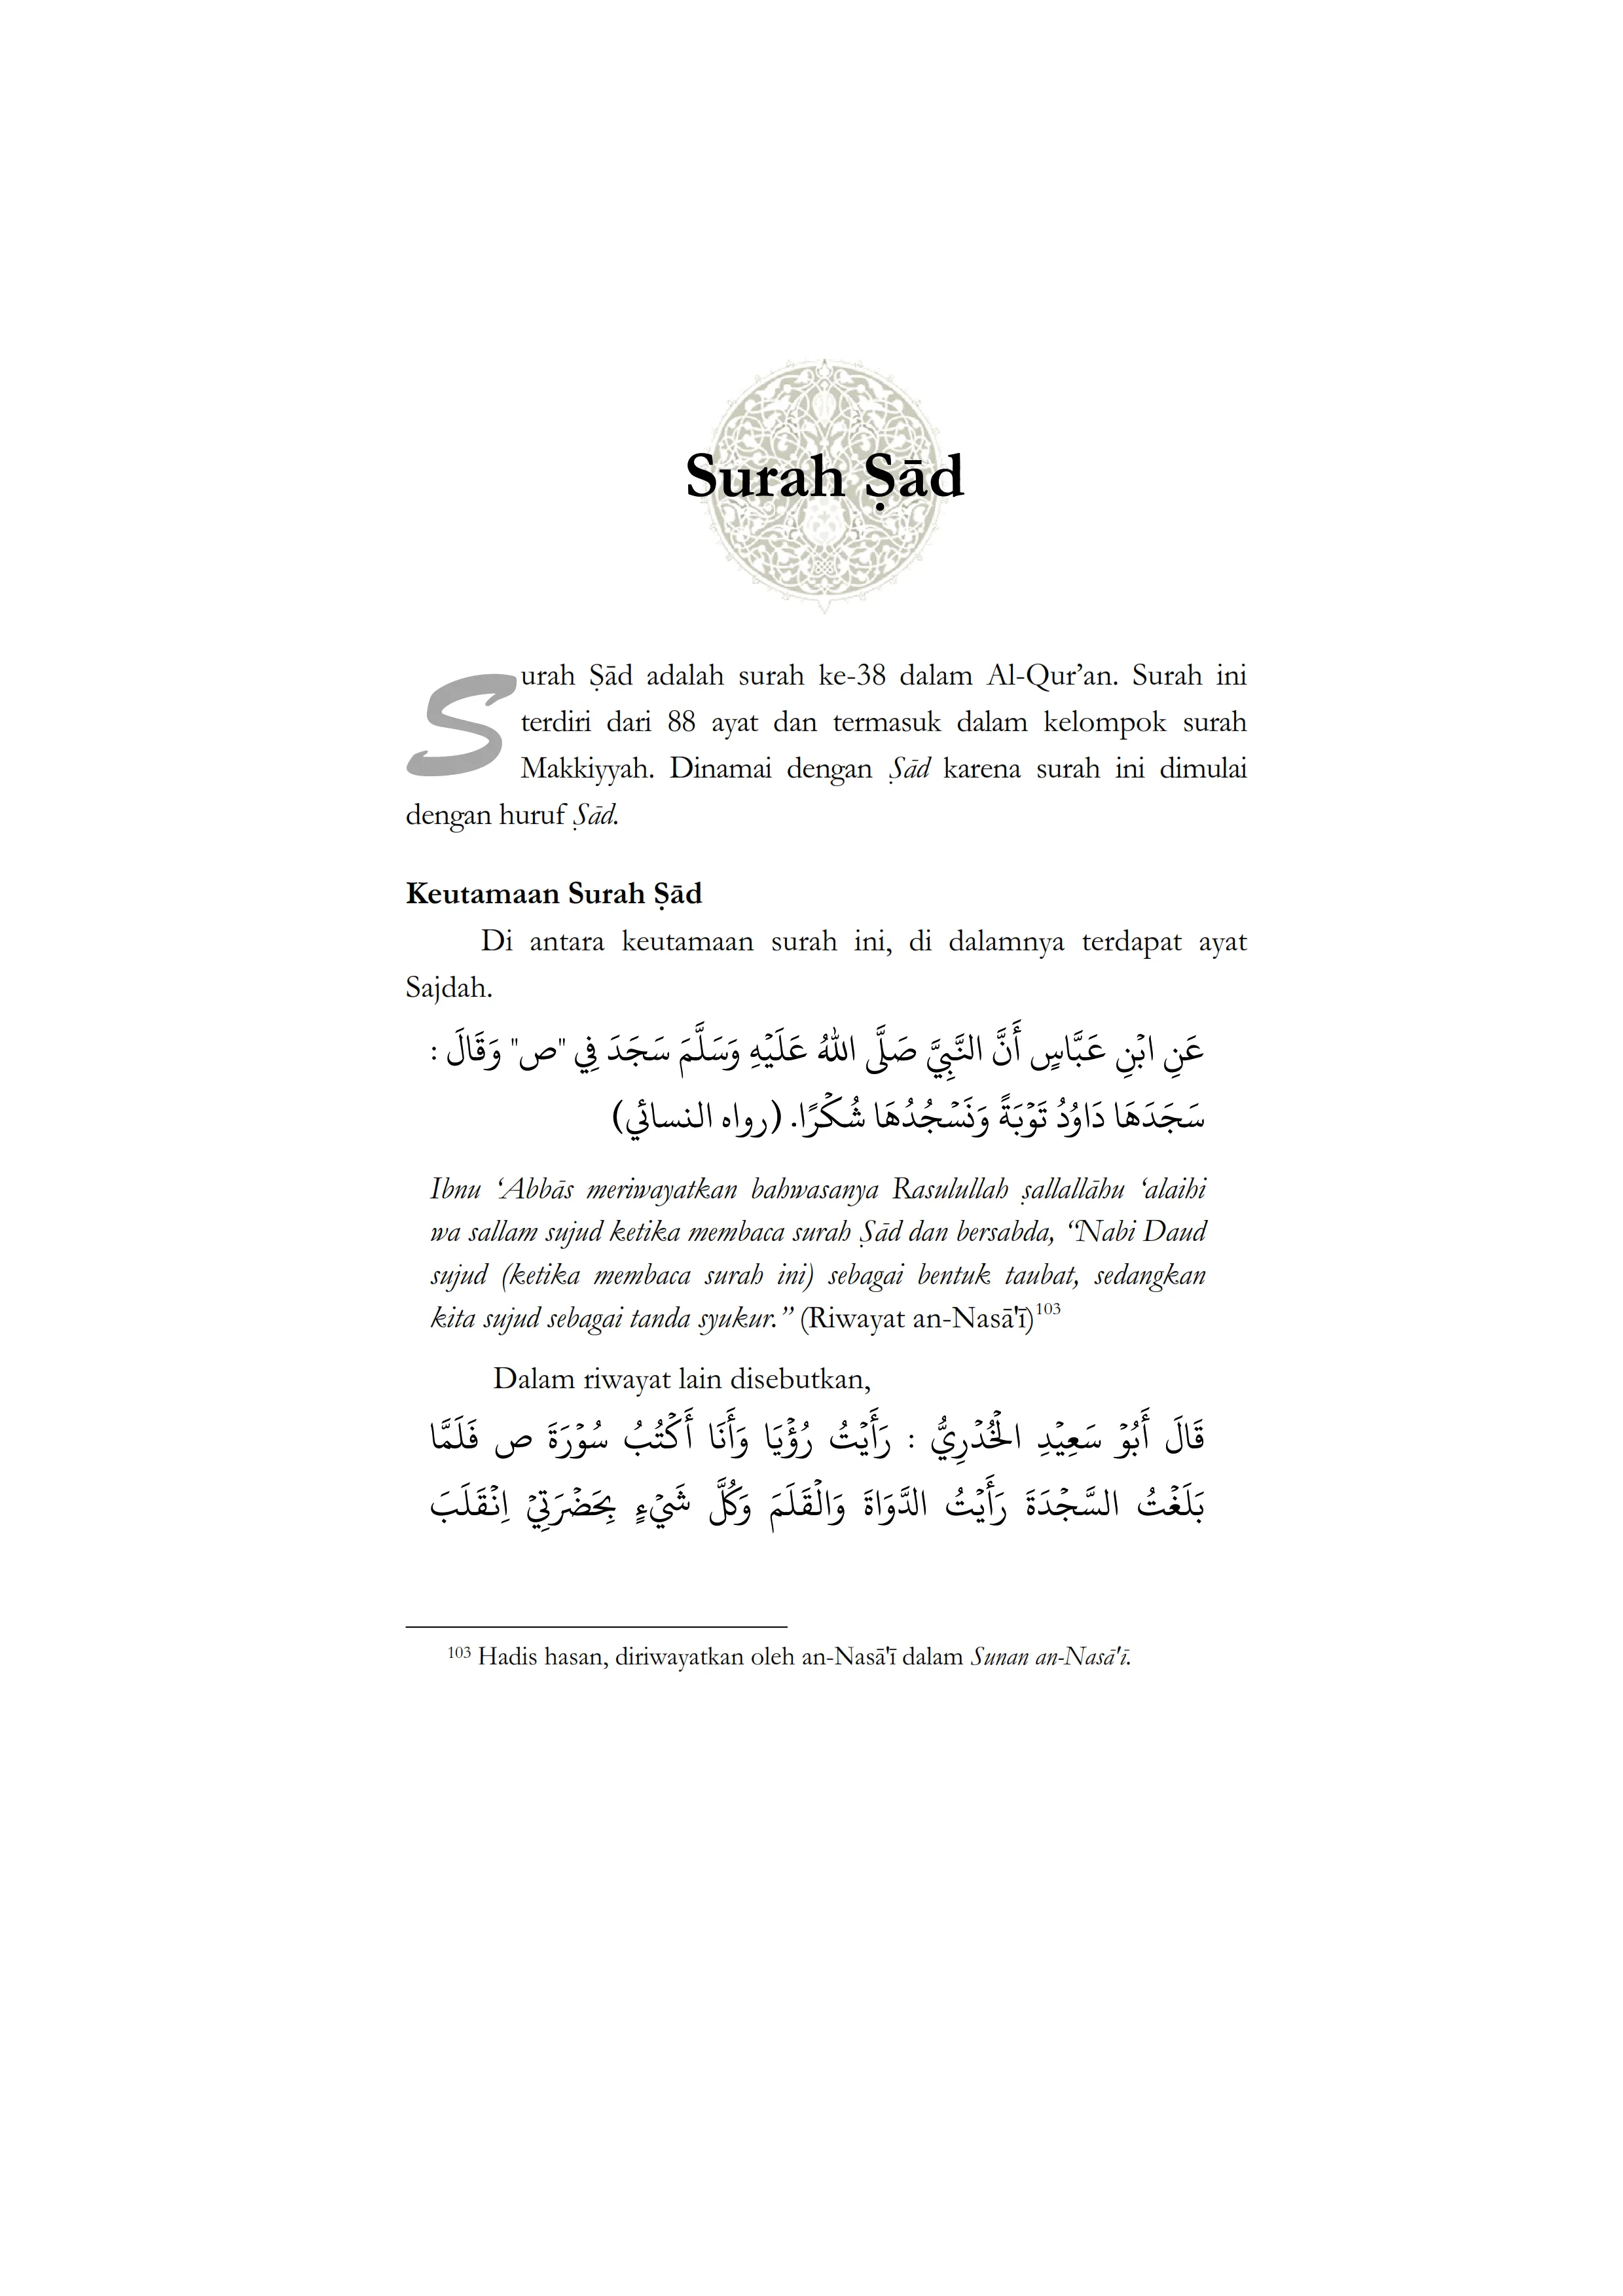 Surah Ṣād
Surah Ṣād adalah surah ke-38 dalam Al-Qur’an. Surah ini
terdiri dari 88 ayat dan termasuk dalam kelompok surah
Makkiyyah. Dinamai dengan Ṣād karena surah ini dimulai
dengan huruf Ṣād.
Keutamaan Surah Ṣād
Di antara keutamaan surah ini, di dalamnya terdapat ayat
Sajdah.
عَنِ ابْنِ عَبَّاسٍ أَنَّ النَّبِيَّ صَلَّى اللهُ عَلَيْهِ وَسَلَّمَ سَجَدَ فِي "ص" وَقَالَ :
سَجَدَهَا دَاوُدُ تَوْبَةً وَنَسْجُدُهَا شُكْرًا. (رواه النسائي)
Ibnu ‘Abbās meriwayatkan bahwasanya Rasulullah ṣallallāhu ‘alaihi
wa sallam sujud ketika membaca surah Ṣād dan bersabda, “Nabi Daud
sujud (ketika membaca surah ini) sebagai bentuk taubat, sedangkan
kita sujud sebagai tanda syukur.” (Riwayat an-Nasā'ī)103
Dalam riwayat lain disebutkan,
قَالَ أَبُوْ سَعِيْدِ الْخُدْرِيُّ : رَأَيْتُ رُؤْيَا وَأَنَا أَكْتُبُ سُوْرَةَ ص فَلَمَّا
بَلَغْتُ السَّجْدَةَ رَأَيْتُ الدَّوَاةَ وَالْقَلَمَ وَكُلَّ شَيْءٍ بِحَضْرَتِيْ اِنْقَلَبَ
103 Hadis hasan, diriwayatkan oleh an-Nasā'ī dalam Sunan an-Nasā'ī.